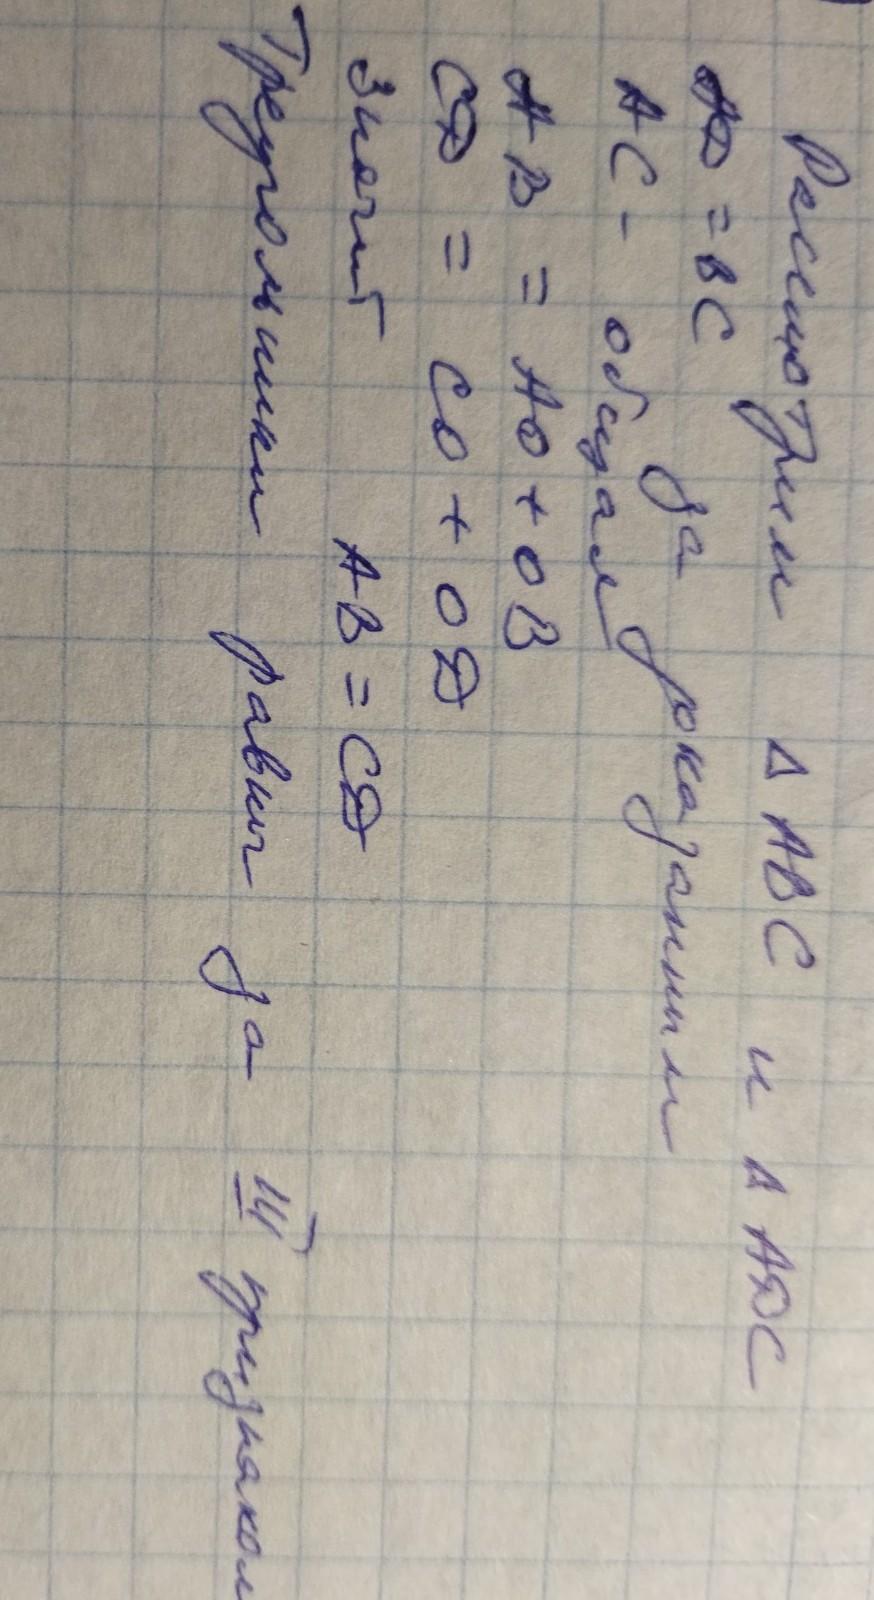 Рассмотрим Δ ABC и Δ ADC
AD = BC за доказанным
AC - общая
AB = AO + OB
CD = CO + OD
Значит AB = CD
Треугольники равны за III признаком